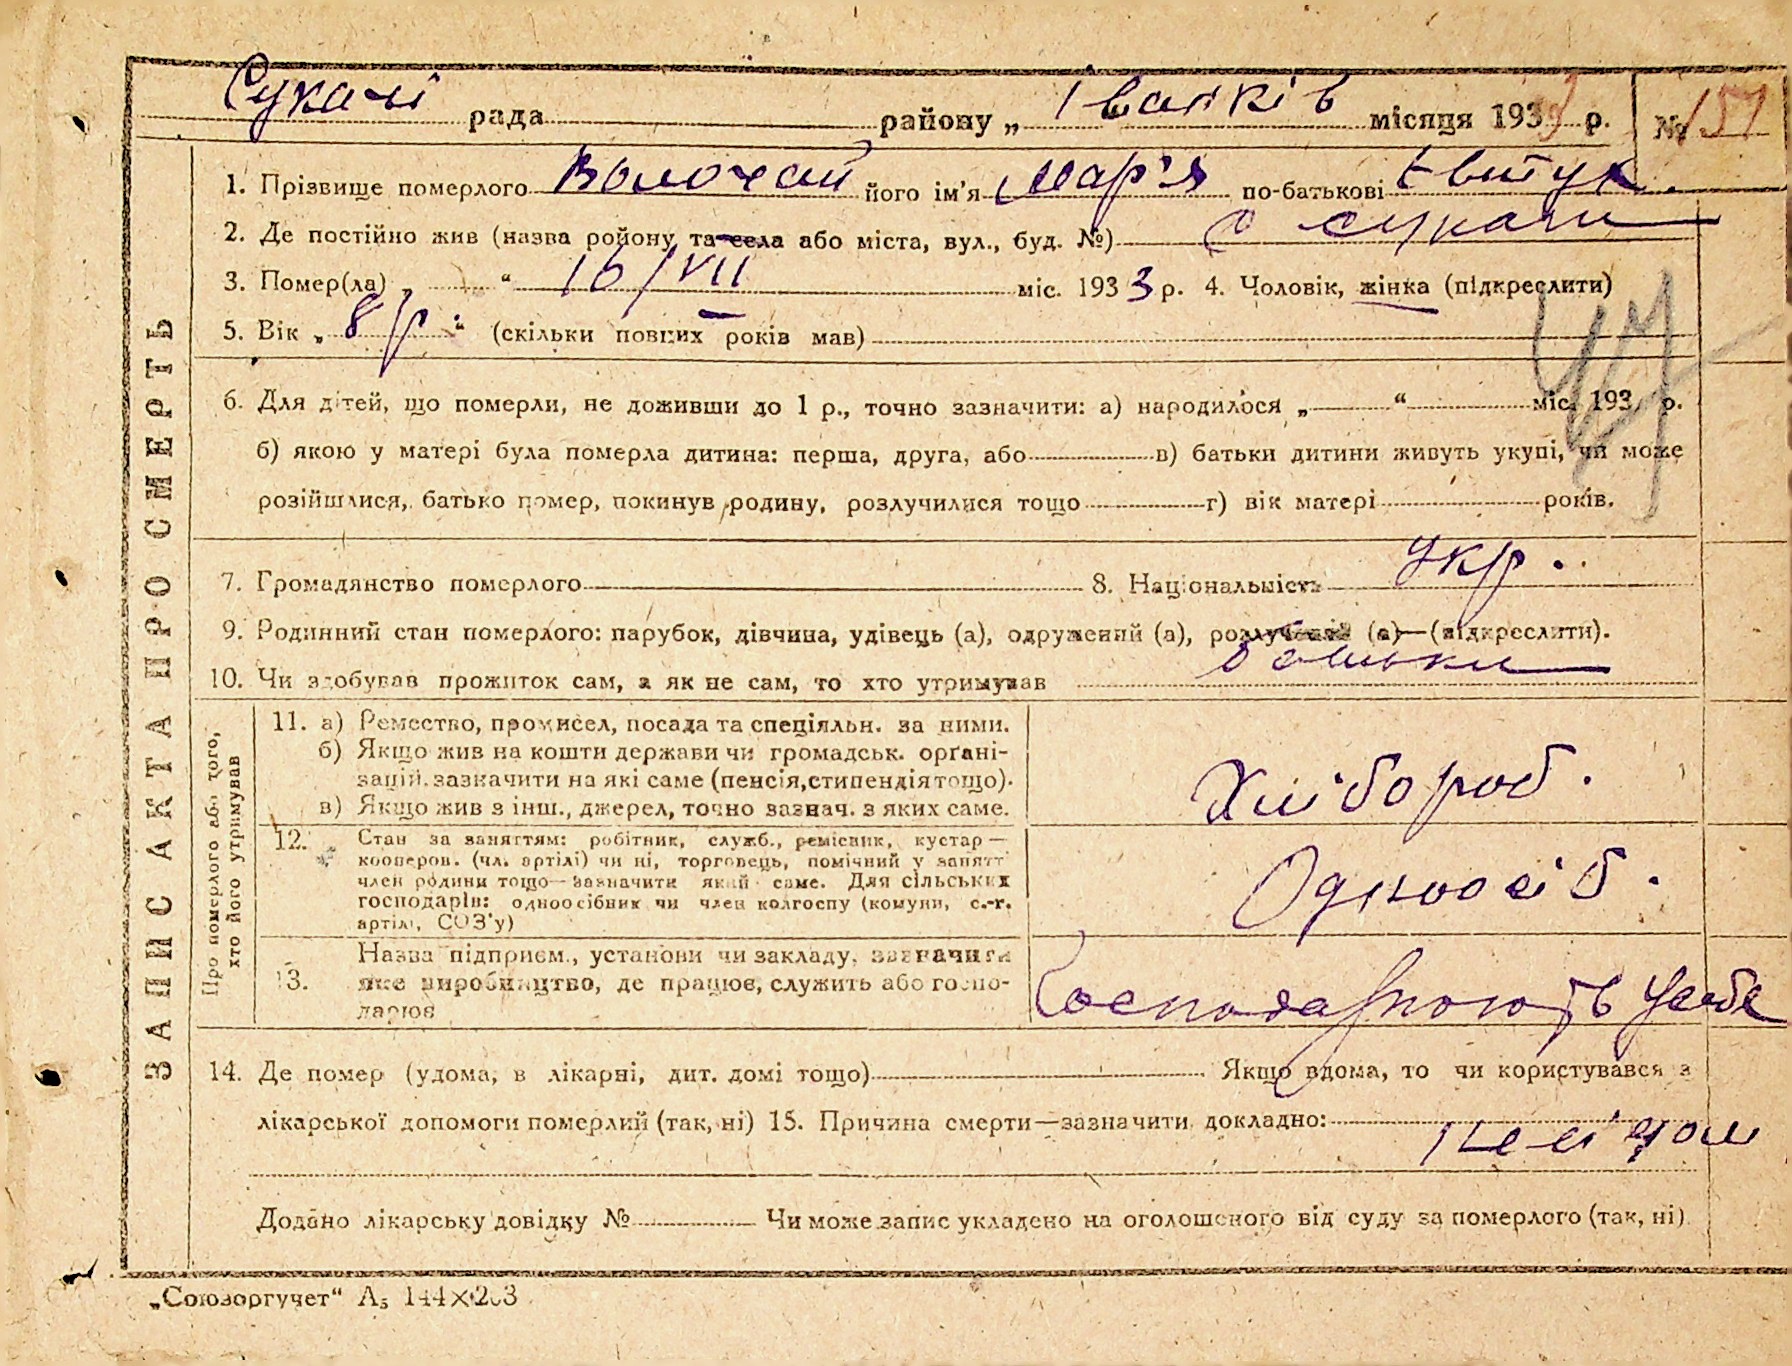 Сукачі рада району „ Іванків місяця 1933 р. № 151
1. Прізвище померлого Волочай його ім'я Мар'я по-батькові Євтух.
2. Де постійно жив (назва ройону та села або міста, вул., буд. №) с Сукачи
3. Помер(ла) „ “ 16/VII міс. 1933 р. 4. Чоловік, жінка (підкреслити)
5. Вік „ 8 р “ (скільки повних років мав)
6. Для дітей, що померли, не доживши до 1 р., точно зазначити: а) народилося „ “ міс. 193 р.
б) якою у матері була померла дитина: перша, друга, або в) батьки дитини живуть укупі, чи може
розійшлися, батько помер, покинув родину, розлучилися тощо г) вік матері років.
7. Громадянство померлого 8. Національність Укр.
9. Родинний стан померлого: парубок, дівчина, удівець (а), одружений (а), розлучений (а)—(підкреслити).
10. Чи здобував прожиток сам, а як не сам, то хто утримував батьки
ЗАПИС АКТА ПРО СМЕРТЬ
Про померлого або того, хто його утримував
11. а) Ремество, промисел, посада та спеціяльн. за ними.
б) Якщо жив на кошти держави чи громадськ. органі-
зацій, зазначити на які саме (пенсія, стипендія тощо).
в) Якщо жив з інш., джерел, точно зазнач. з яких саме.
Хлібороб.
12. Стан за заняттям: робітник, служб., ремісник, кустар—
кооперов. (чл. артілі) чи ні, торговець, помічний у занятт
член родини тощо—зазначити який саме. Для сільських
господарів: одноосібник чи член колгоспу (комуни, с.-г.
артілі, СОЗ'у)
Одноосіб.
13. Назва підприєм., установи чи закладу, зазначити
яке виробництво, де працює, служить або госпо-
дарює
14. Де помер (удома, в лікарні, дит. домі тощо) Якщо вдома, то чи користувався з
лікарської допомоги померлий (так, ні) 15. Причина смерти—зазначити докладно:
Додано лікарську довідку № Чи може запис укладено на оголошеного від суду за померлого (так, ні)
„Союзоргучет“ А₅ 144×203